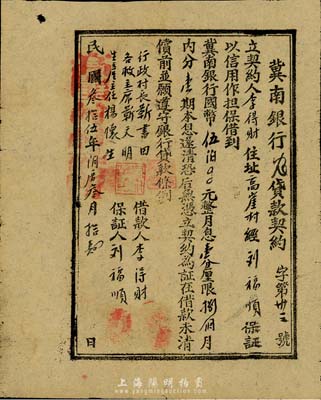 冀南銀行 貸款契約 字第卅三號
立契約人李得財住址高崖村經刘福順保証
以信用作担保借到
冀南銀行國幣伍佰〇〇元整月息壹分厘限捌個月
内分壹期本息還清恐后無憑立契約為証在借款未清
償前並願遵守銀行貸款條例
借款人李得財
保証人刘福順
行政村長靳書田
各救主席靳天明
生産主任楊懷生
民國叁拾伍年閏 叁月拾 日
上海陽明拍賣